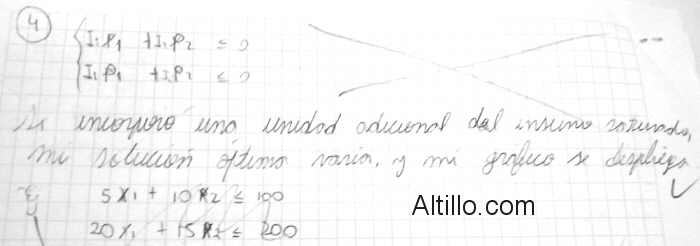 4
I₁P₁ + I₁P₂ ≤ 0
I₁P₁ + I₁P₂ ≤ 0
Si incorporo una unidad adicional del insumo saturado,
mi solución óptima varia, y mi gráfico se despliega
Ej 5X₁ + 10X₂ ≤ 100
20X₁ + 15X₂ ≤ 200
Altillo.com